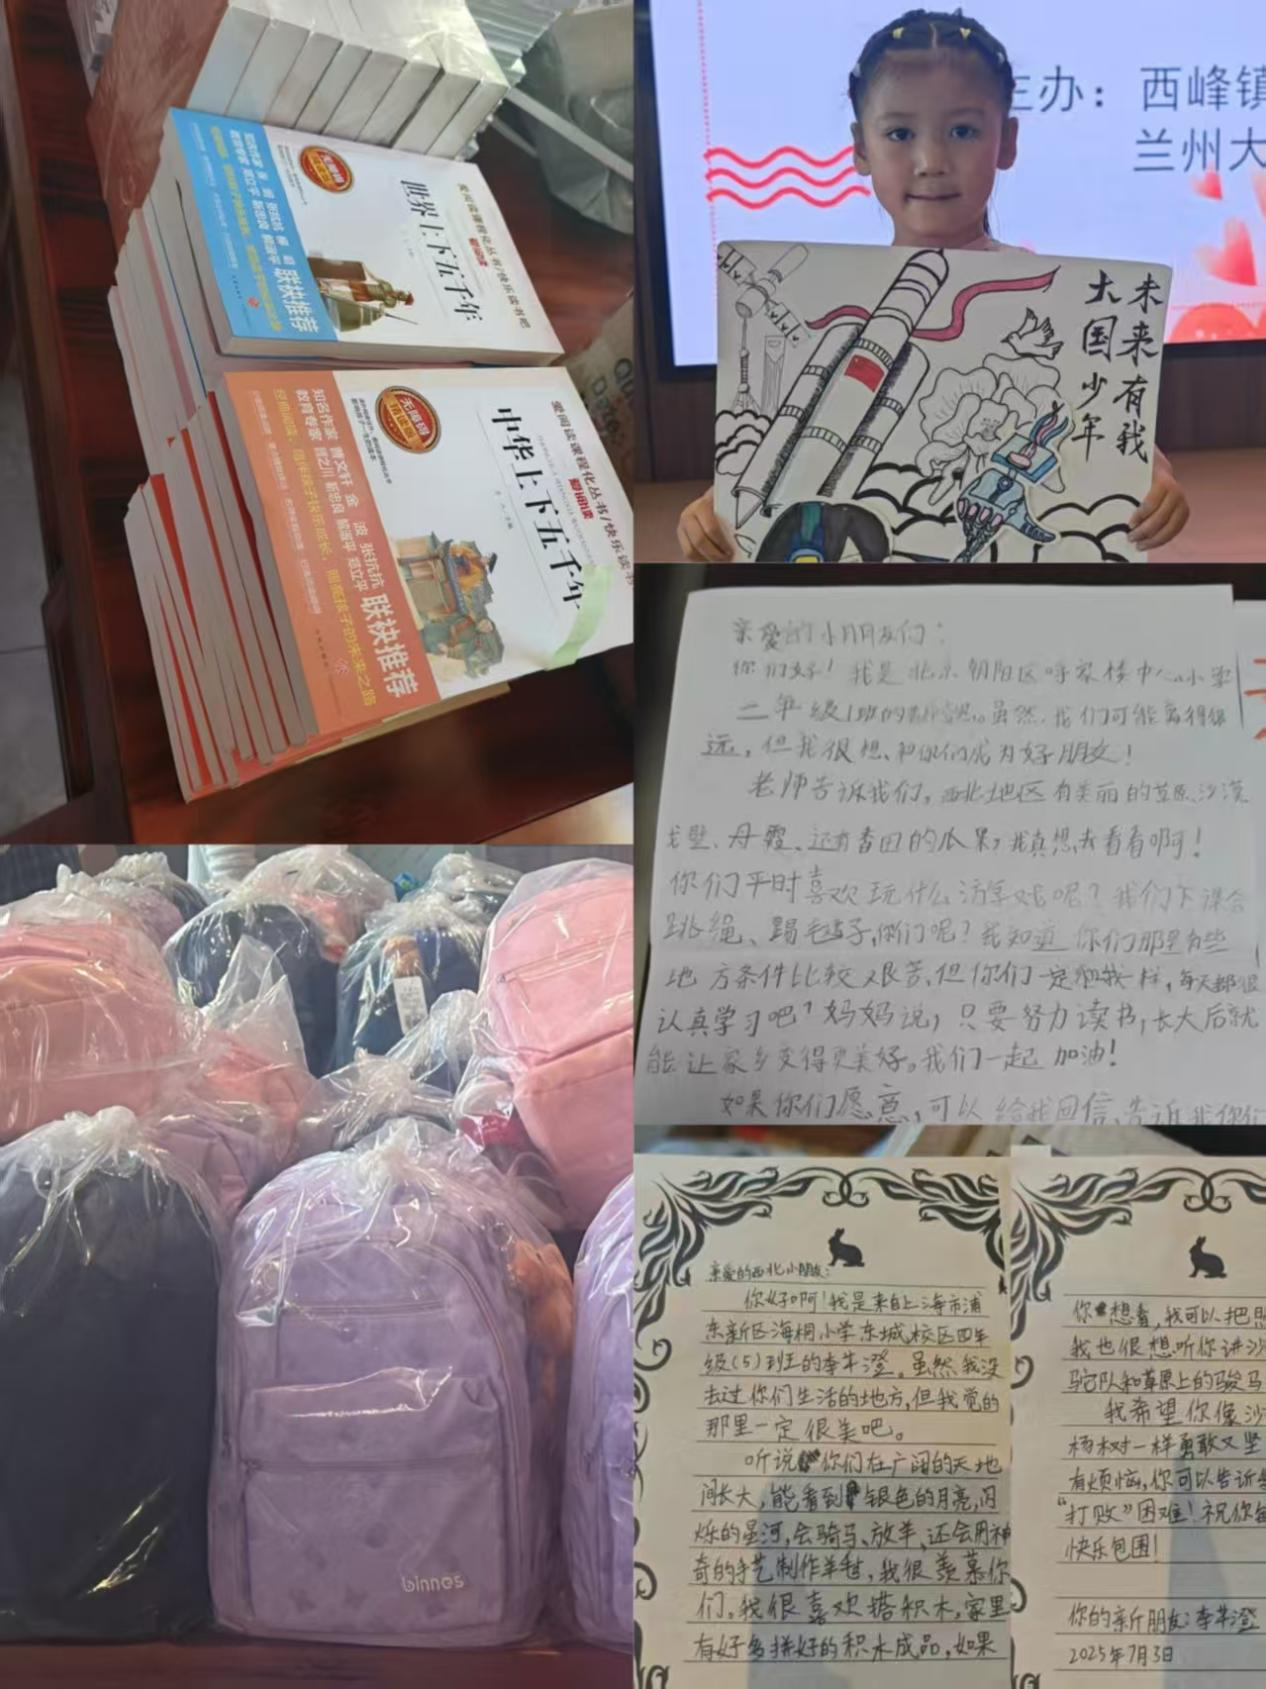 世界上下五千年
爱阅读课程化丛书/快乐读书吧
爱阅读
无障碍
精读版
联袂推荐
中华上下五千年
爱阅读课程化丛书/快乐读书
爱阅读
无障碍
精读版
知名作家 曹文轩 金 波 张抗抗
联袂推荐
主办：西峰镇
兰州大
未来有我
大国少年
亲爱的小朋友们：
你们好！我是北京朝阳区呼家楼中心小学
二年级1班的 虽然，我们可能离得很
远，但我很想和你们成为好朋友！
老师告诉我们，西北地区有美丽的草原、沙漠
戈壁、丹霞，还有香甜的瓜果，我真想去看看啊！
你们平时喜欢玩什么游戏呢？我们下课会
跳绳、踢毛毽子，你们呢？我知道你们那里有些
地方条件比较艰苦，但你们一定和我一样，每天都很
认真学习吧？妈妈说，只要努力读书，长大后就
能让家乡变得更美好。我们一起加油！
如果你们愿意，可以给我回信，告诉我你们
亲爱的西北小朋友：
你好啊！我是来自上海市浦
东新区海桐小学东城校区四年
级（5）班的李芊澄。虽然我没
去过你们生活的地方，但我觉的
那里一定很美吧。
听说你们在广阔的天地
间长大，能看到银色的月亮，闪
烁的星河，会骑马、放羊，还会用神
奇的手艺制作羊毡，我很羡慕你
们。我很喜欢搭积木，家里
有好多拼好的积木成品，如果
你想看，我可以把照
我也很想听你讲沙
驼队和草原上的骏马
我希望你像沙
杨树一样勇敢又坚
有烦恼，你可以告诉
“打败”困难！祝你每
快乐包围！
你的新朋友：李芊澄
2025年7月3日
binnes